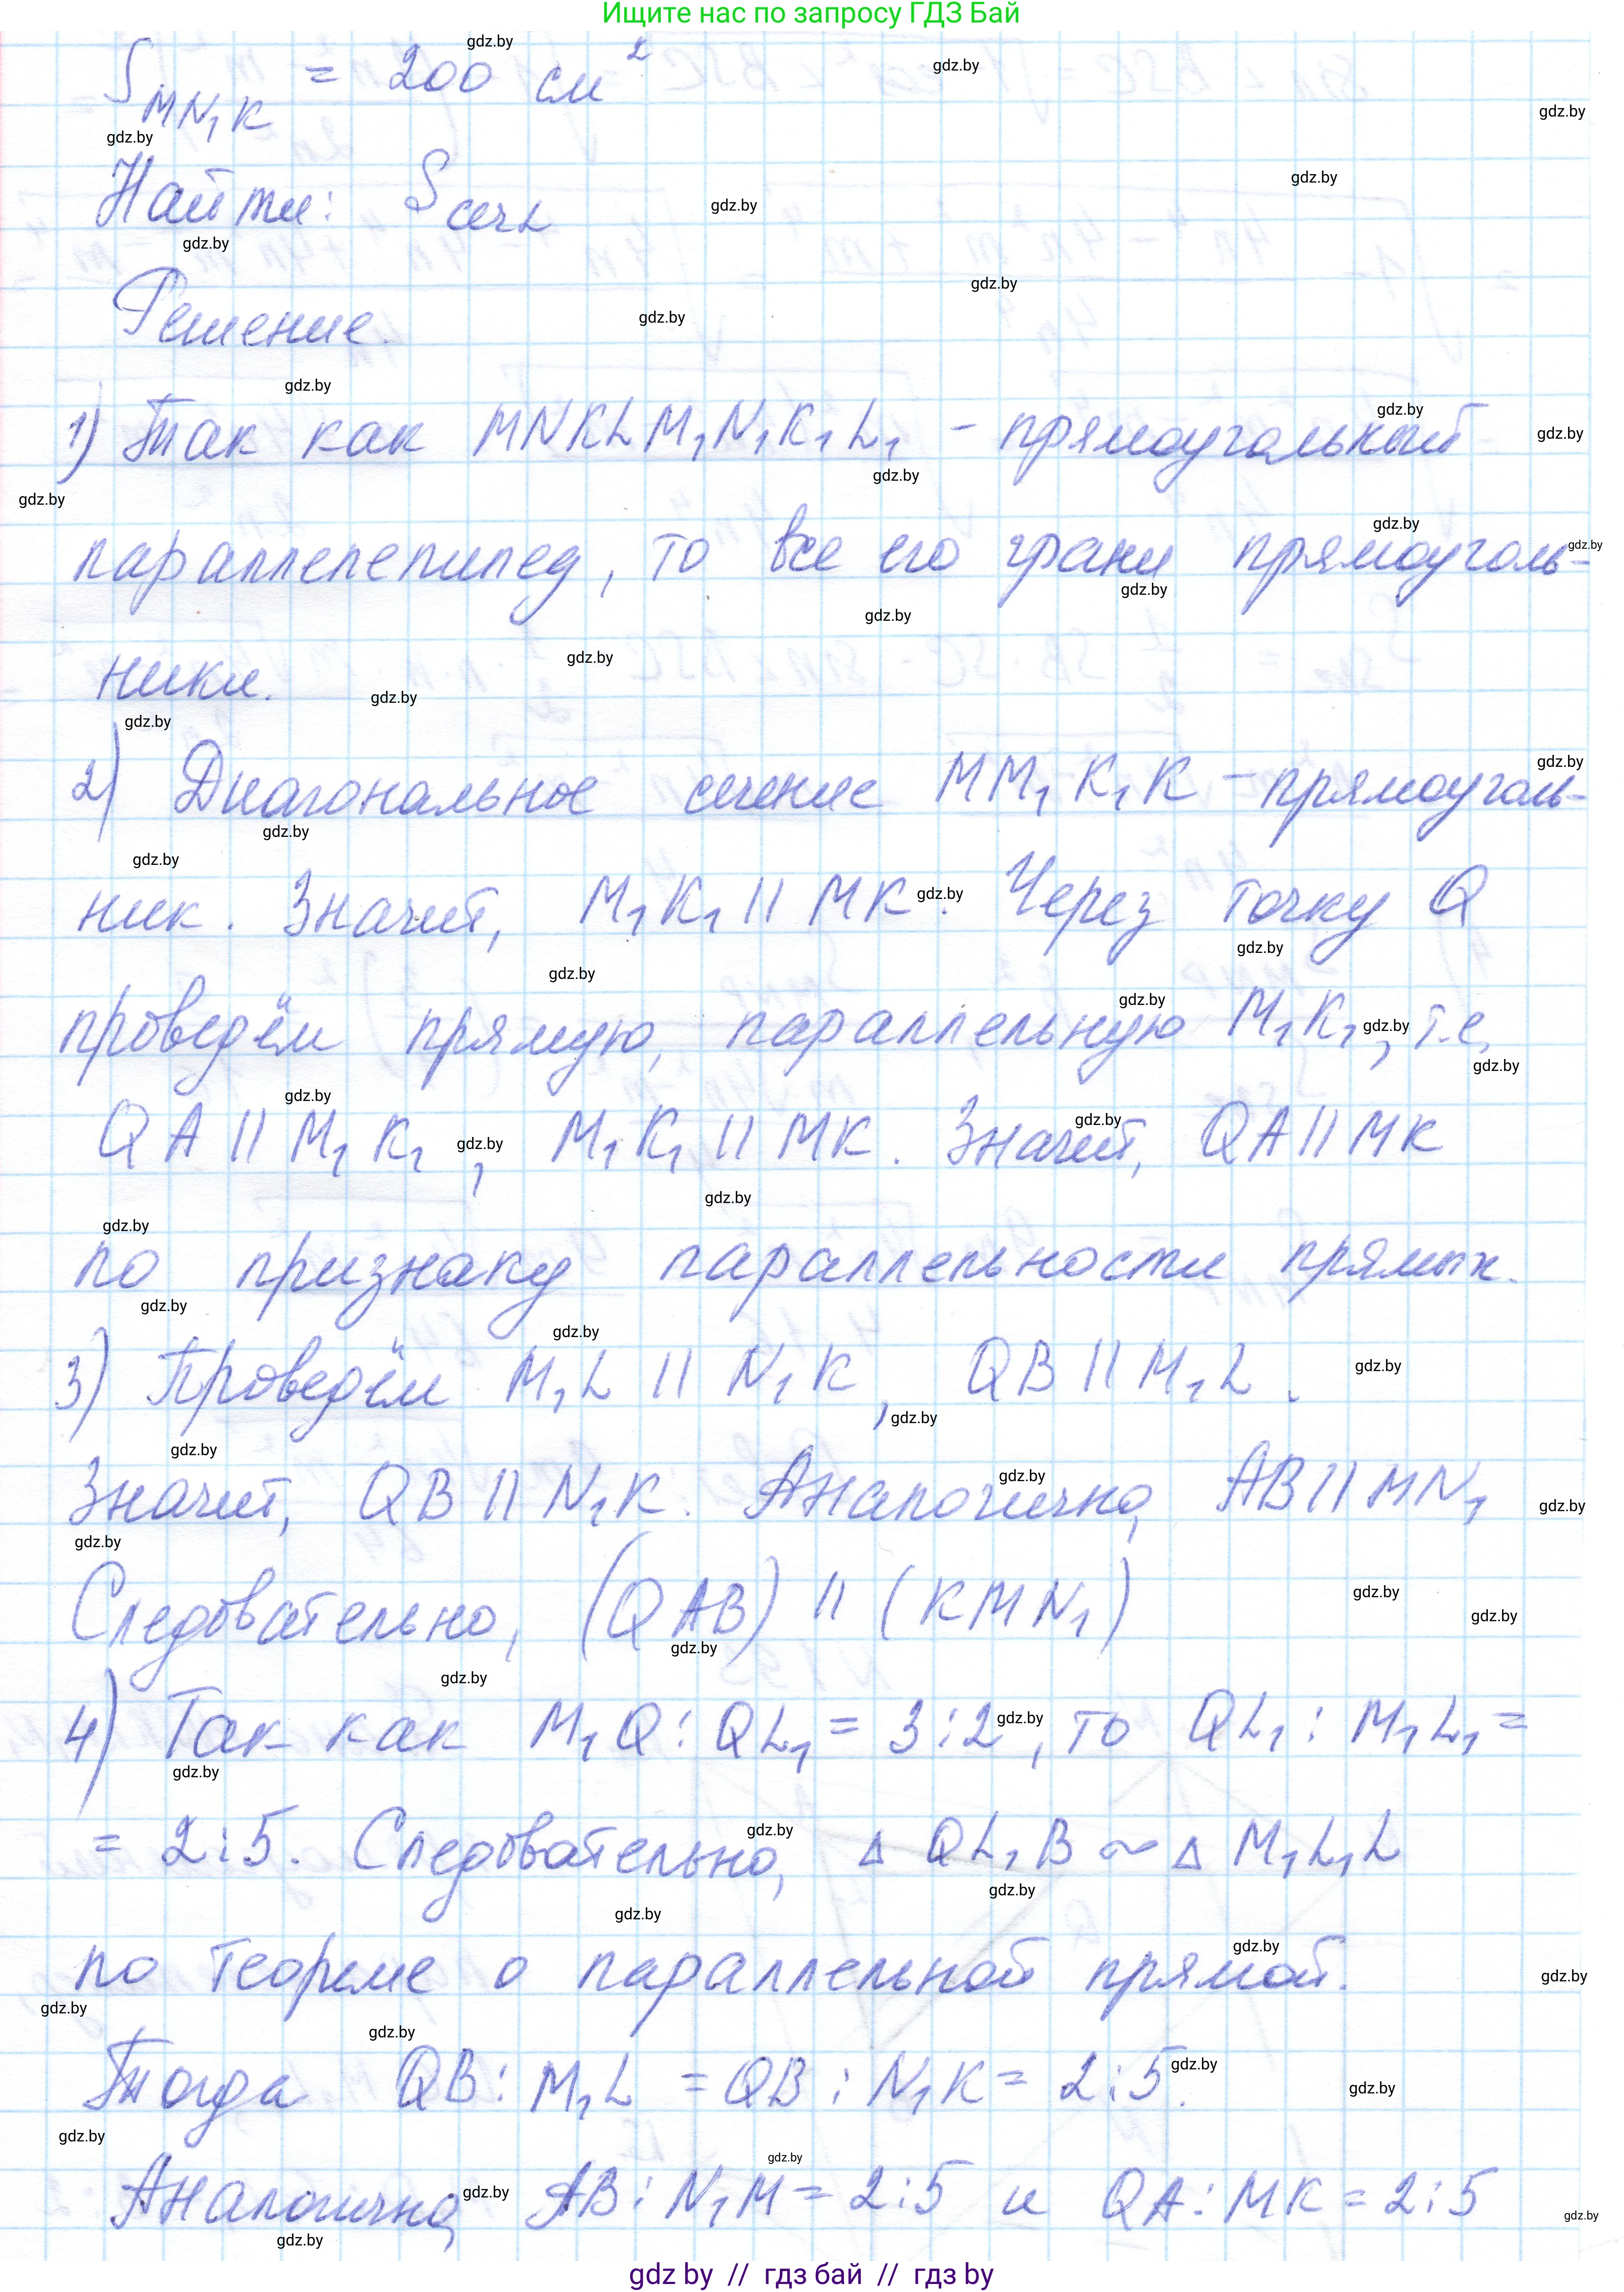 Ищите нас по запросу ГДЗ Бай
S MN₁K = 200 см²
Найти: S сеч.
Решение.
1) Так как MNKLM₁N₁K₁L₁ - прямоугольный
параллелепипед, то все его грани прямоуголь-
ники.
2) Диагональное сечение MM₁K₁K - прямоуголь-
ник. Значит, M₁K₁ || MK. Через точку Q
проведём прямую, параллельную M₁K₁, т.е.
QA || M₁K₁, M₁K₁ || MK. Значит, QA || MK
по признаку параллельности прямых.
3) Проведём M₁L || N₁K, QB || M₁L.
Значит, QB || N₁K. Аналогично, AB || MN₁
Следовательно, (QAB) || (KMN₁)
4) Так как M₁Q : QL₁ = 3:2, то QL₁ : M₁L₁ =
= 2:5. Следовательно, Δ QL₁B ~ Δ M₁L₁L
по теореме о параллельной прямой.
Тогда QB : M₁L = QB : N₁K = 2:5.
Аналогично, AB : N₁M = 2:5 и QA : MK = 2:5
gdz by // гдз бай // гдз by